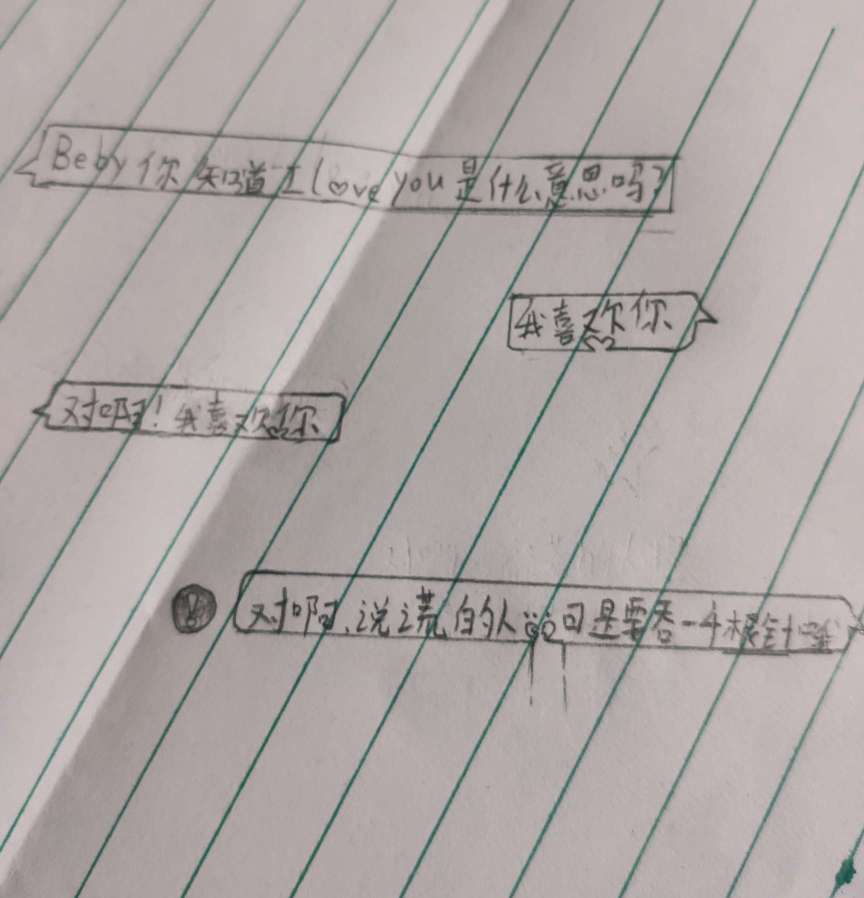 Beby你知道I love you是什么意思吗?
我喜欢你
对啊!我喜欢你
! 对啊、说谎的人可是要吞一千根针哦